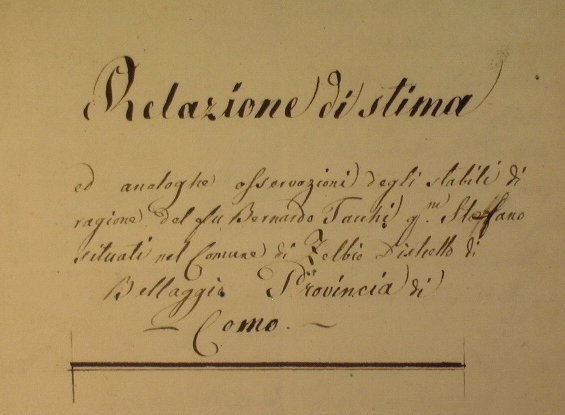 Relazione di stima
ed analoghe osservazioni degli stabili di
ragione del fu Bernardo Tacchi q.m Steffano
situati nel Comune di Zelbio Distretto di
Bellaggio Provincia di
– Como. –